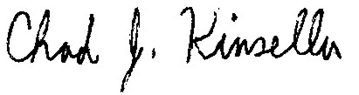 Chad J. Kinsella